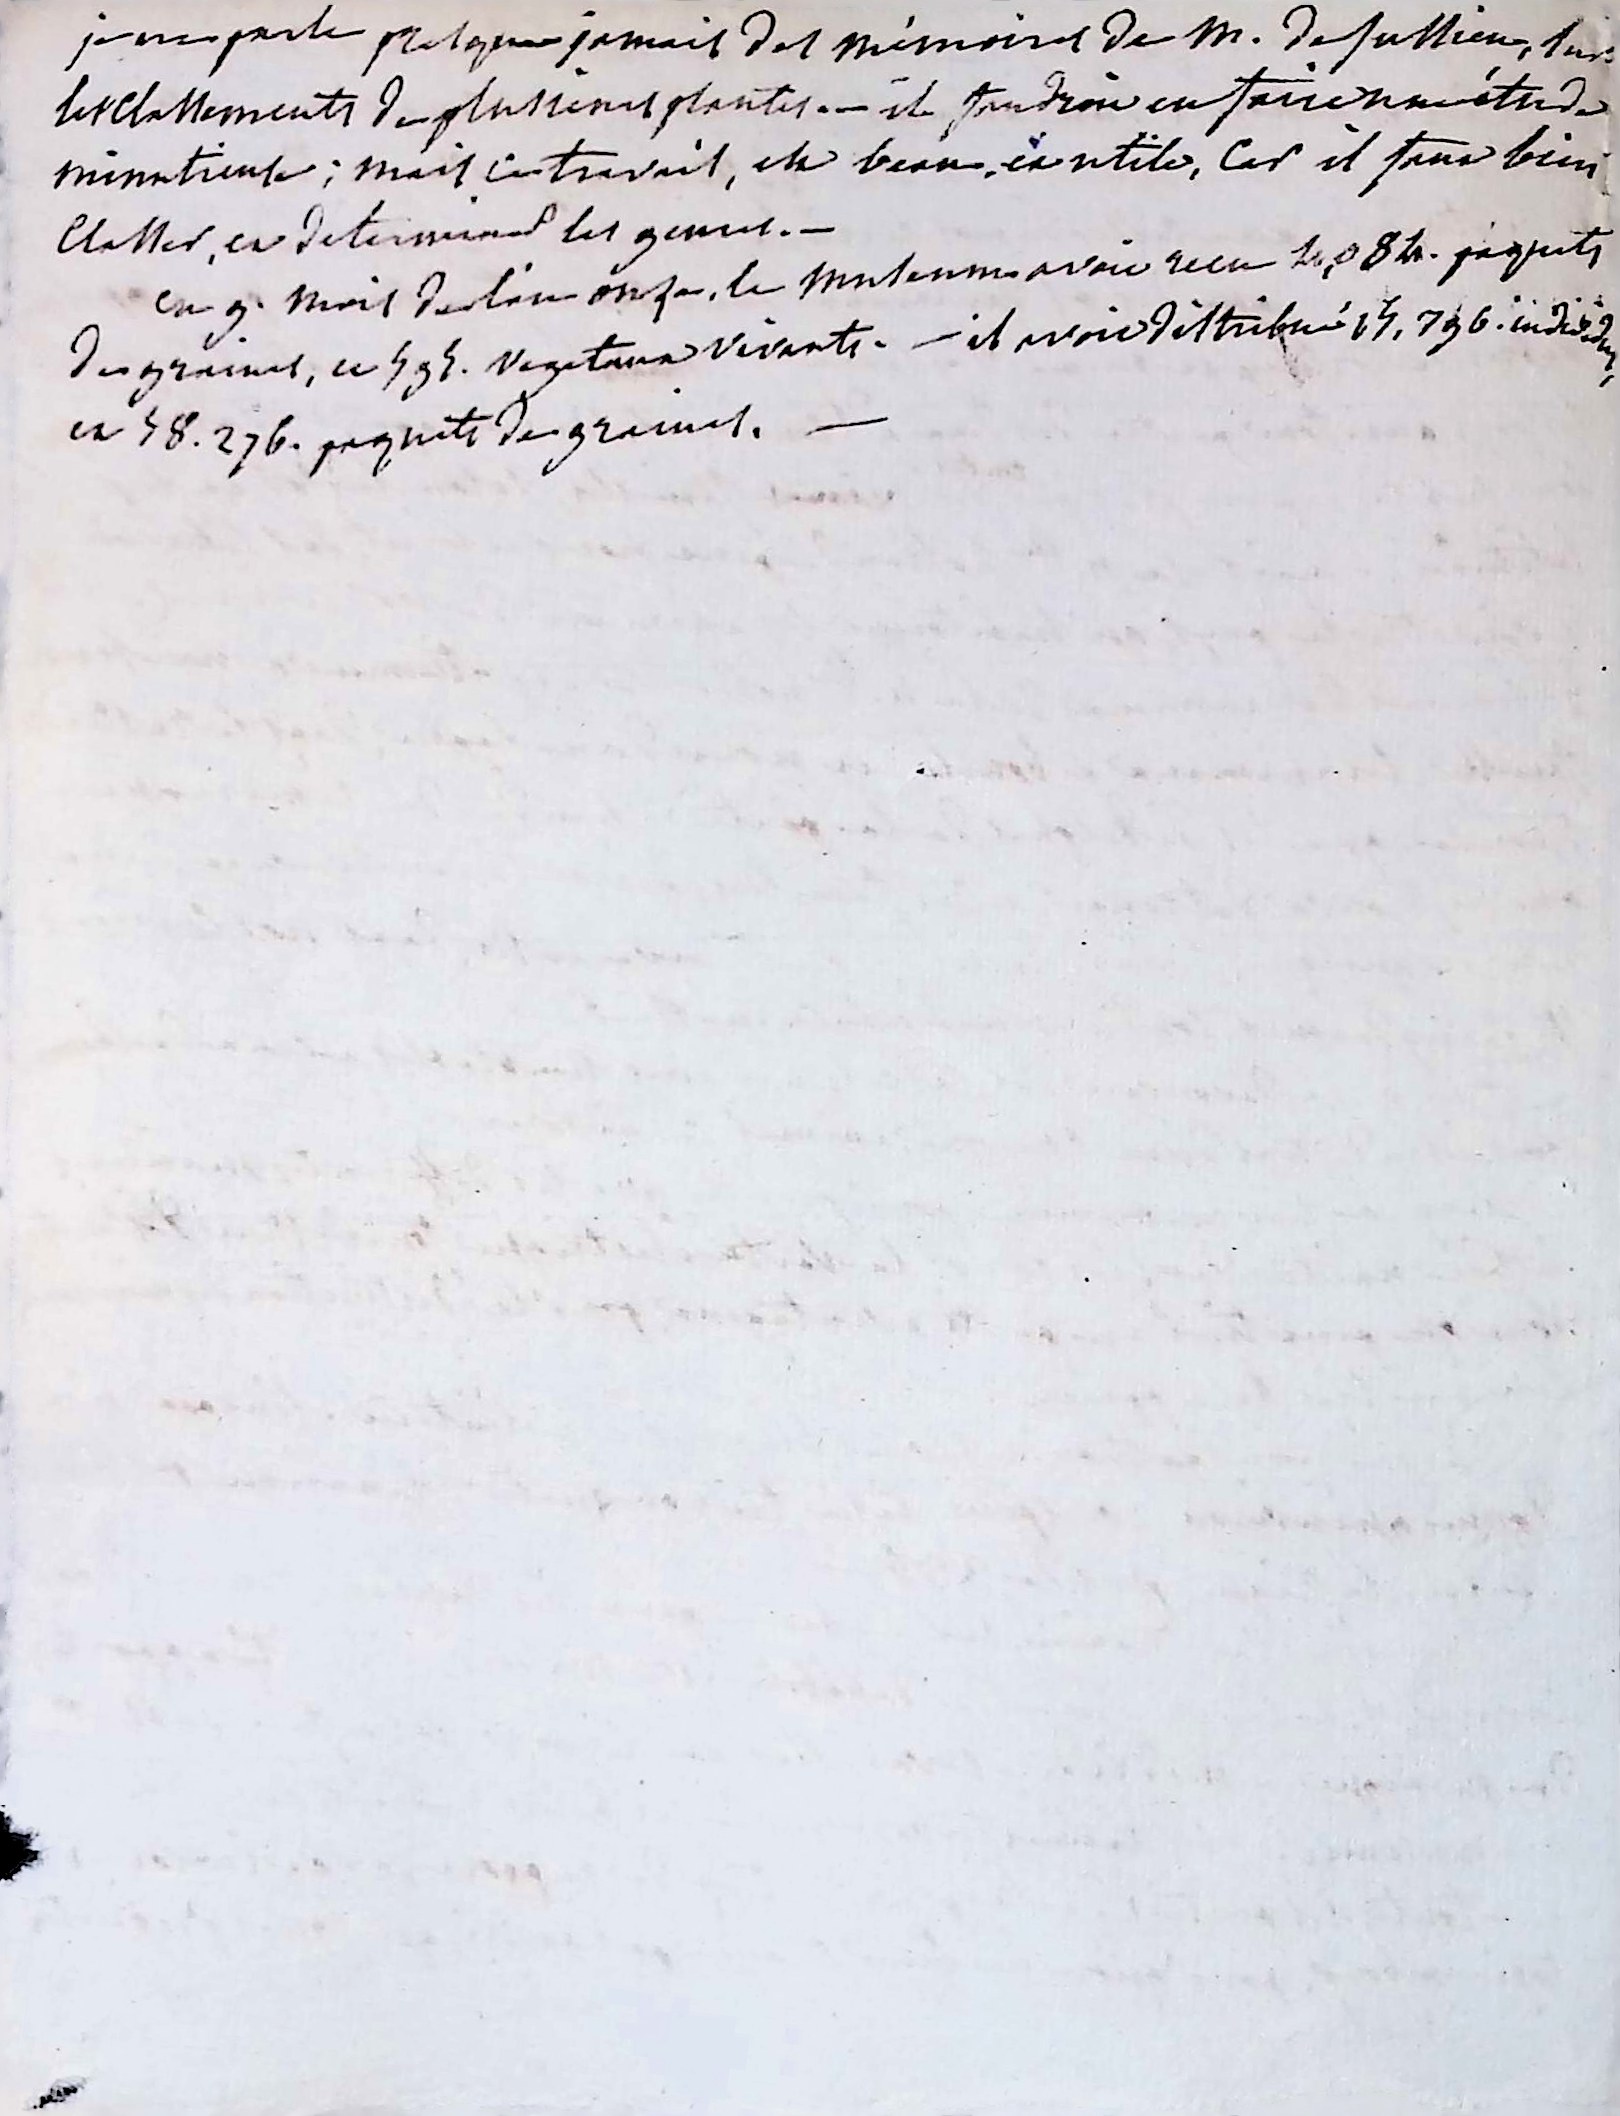 je ne parle presque jamais des mémoires de M. de Jussieu, sur
les classements de plusieurs plantes. — il faudroit en faire une étude
minutieuse ; mais ce travail, est beau, et utile, car il faut bien
classer, et determiner les genres. —
en 9. mois de l'an onze, le Museum avoit recu 4,084. paquets
de graines, et 595. vegetaux vivants. — il avoit distribué 15,796. individus,
et 58.276. paquets de graines. —